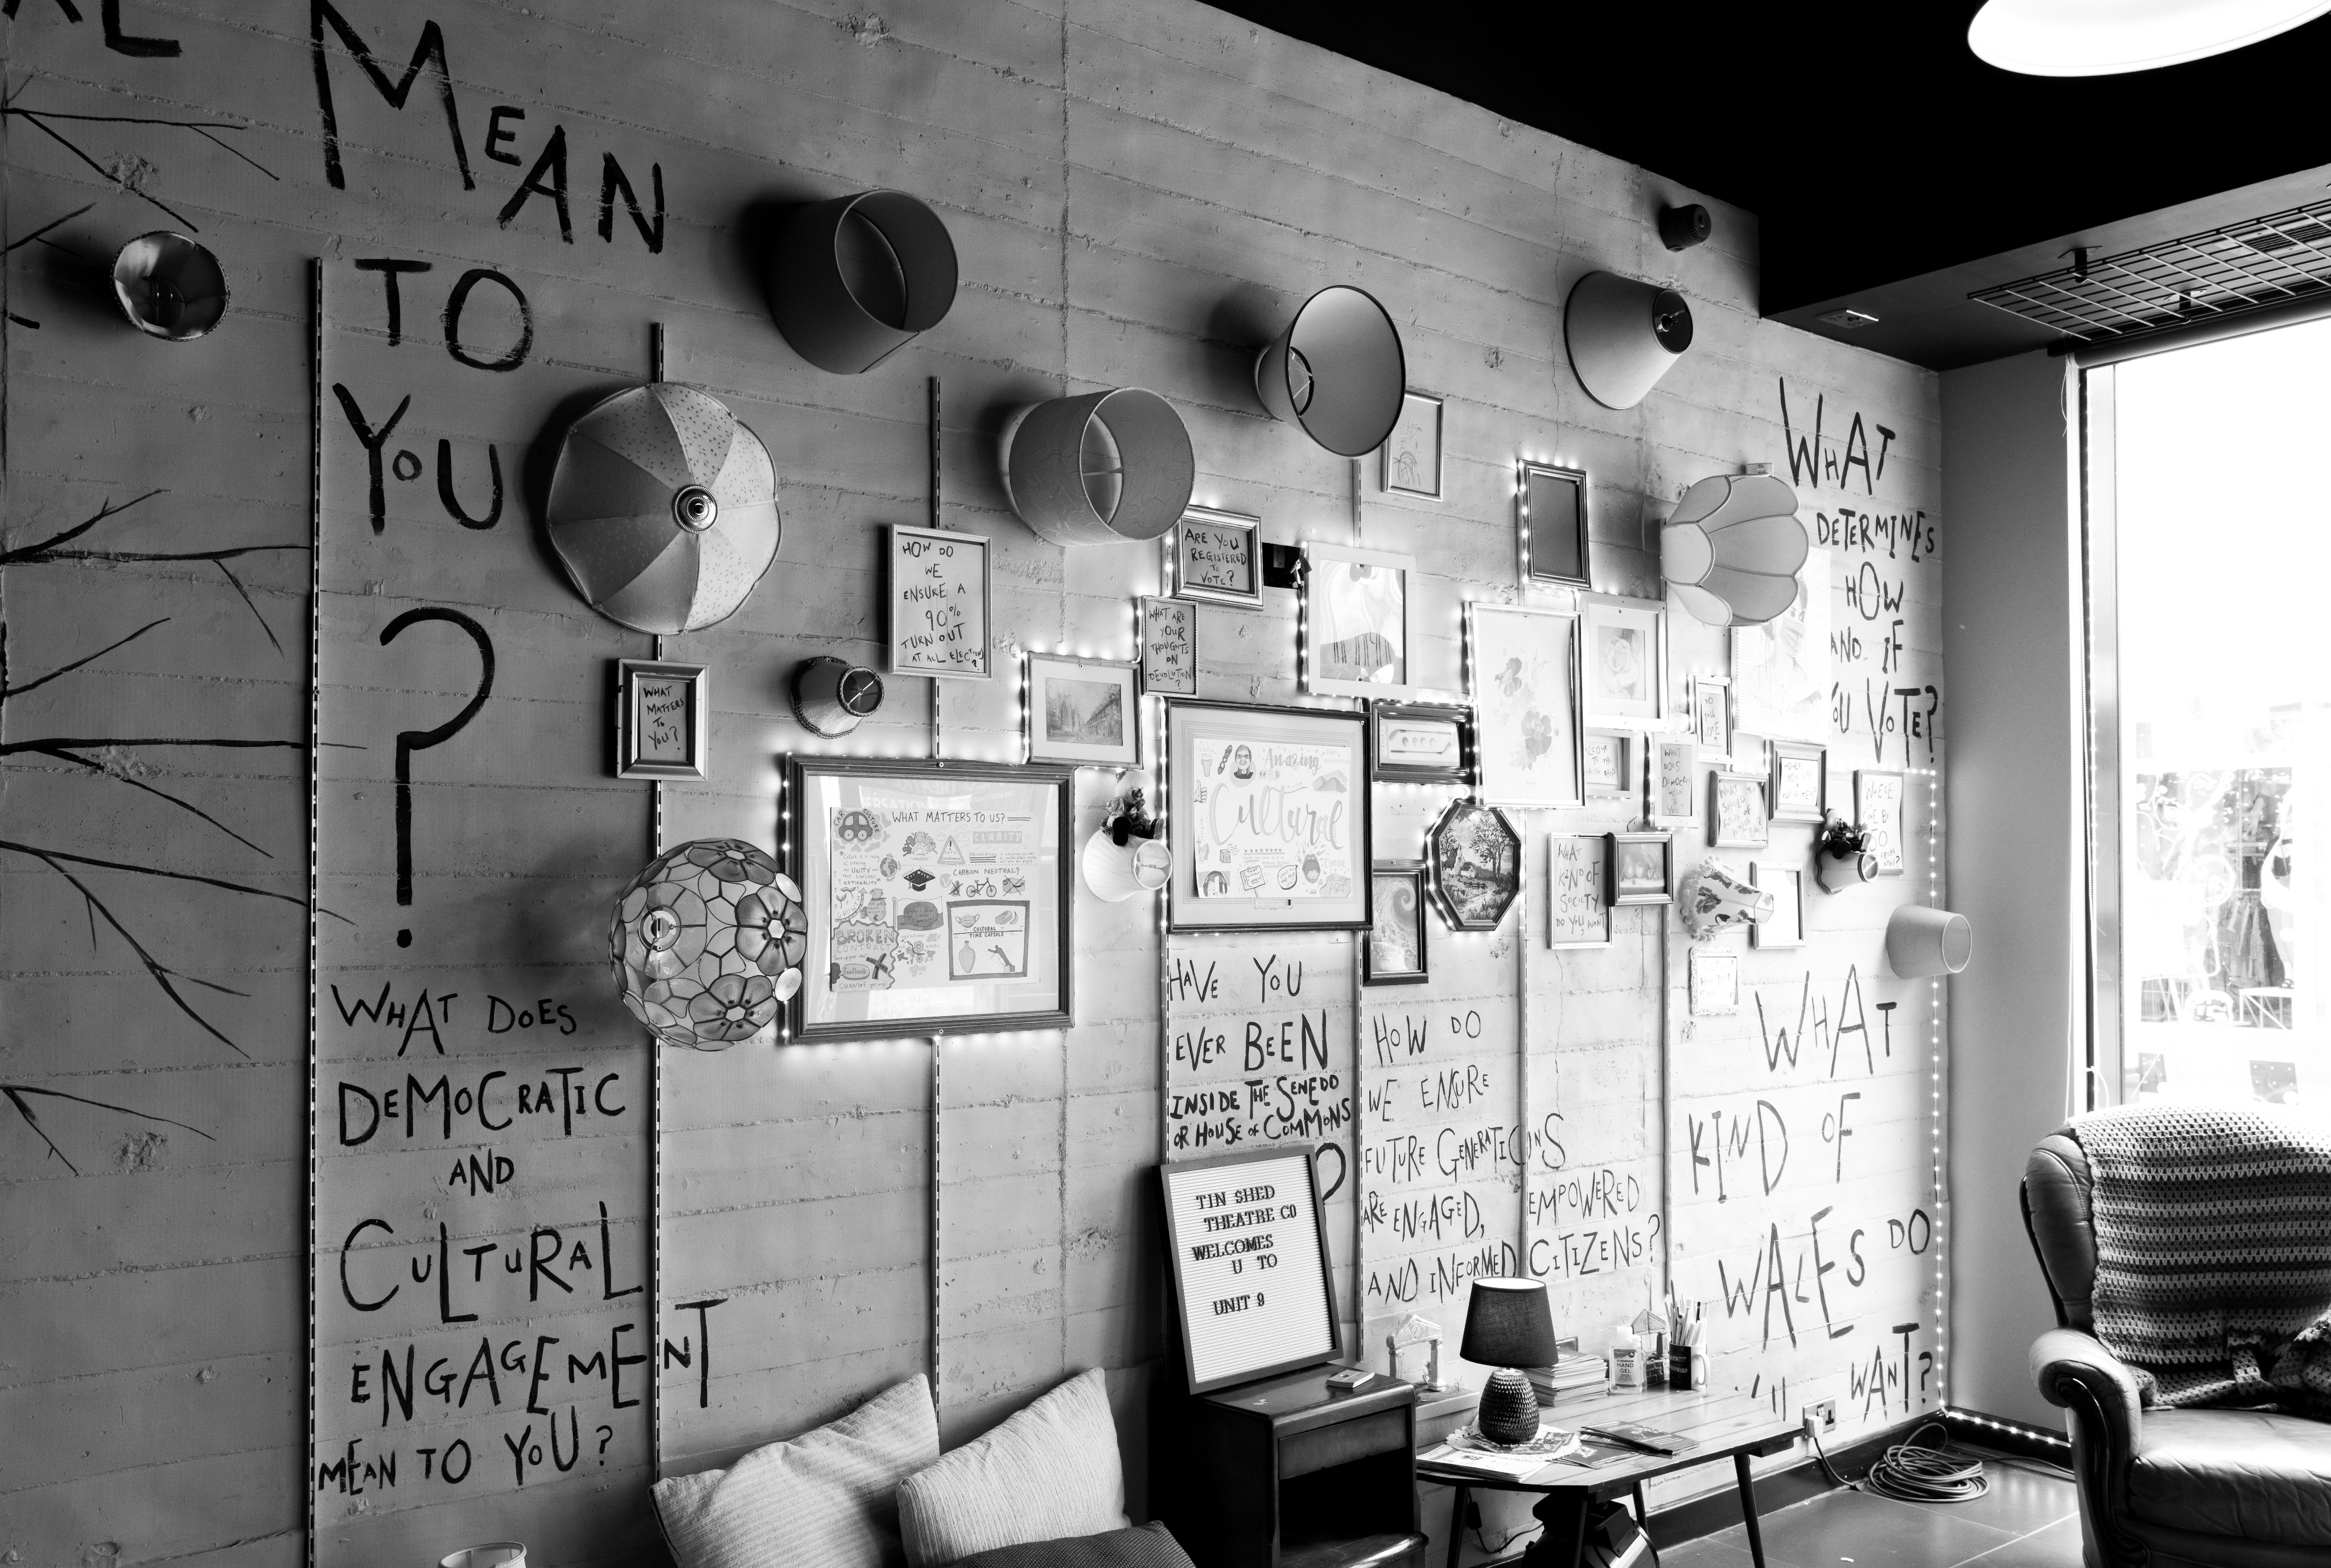 MEAN
TO
YOU
?
WHAT DOES
DEMOCRATIC
AND
CULTURAL
ENGAGEMENT
MEAN TO YOU?
WHAT
MATTERS
TO
YOU?
HOW DO
WE
ENSURE A
90%
TURN OUT
AT ALL ELECTIONS
?
ARE YOU
REGISTERED
TO
VOTE?
WHAT ARE
YOUR
THOUGHTS
ON
DEVOLUTION
?
WHAT MATTERS TO US?
CLARITY
UNITY
CARBON NEUTRAL?
BROKEN
CONTRACT
CULTURAL
TIME CAPSULE
CHANGE
Amazing
Cultural
HAVE YOU
EVER BEEN
INSIDE THE SENEDD
OR HOUSE OF COMMONS
?
TIN SHED
THEATRE CO
WELCOMES
U TO
UNIT 9
HOW DO
WE ENSURE
FUTURE GENERATIONS
ARE ENGAGED, EMPOWERED
AND INFORMED CITIZENS?
WHAT
KIND OF
SOCIETY
DO YOU WANT
WHAT
DOES
WHAT
DETERMINES
HOW
AND IF
YOU VOTE?
WHAT
KIND OF
WALES DO
WANT?
HAND
GEL